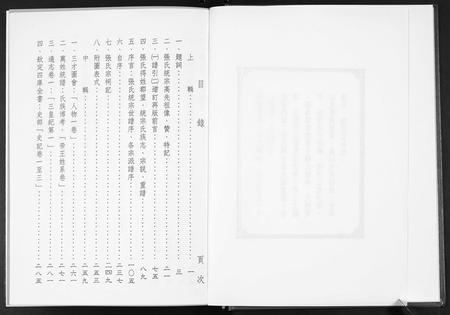 目錄　頁次
上輯⋯⋯一
一、題詞⋯⋯三
二、張氏統宗高先祖像、贊、特記⋯⋯二一
三、㈠譜引㈡增訂再版前言⋯⋯七五
四、張氏得姓郡盟、統宗氏族志、宗說、重譜⋯⋯八九
五、序言：張氏統宗世譜序、各宗派譜序⋯⋯一〇五
六、自序⋯⋯二三七
七、張氏宗祠記⋯⋯二四九
八、附圖表式⋯⋯二五三
中輯⋯⋯二五九
一、三才圖會：「人物一卷」⋯⋯二六一
二、萬姓統譜：氏族博考、「帝王姓系卷」⋯⋯二七一
三、通志卷一：「三皇紀第一」⋯⋯二八一
四、欽定四庫全書：史部「史記卷一至三」⋯⋯二八五